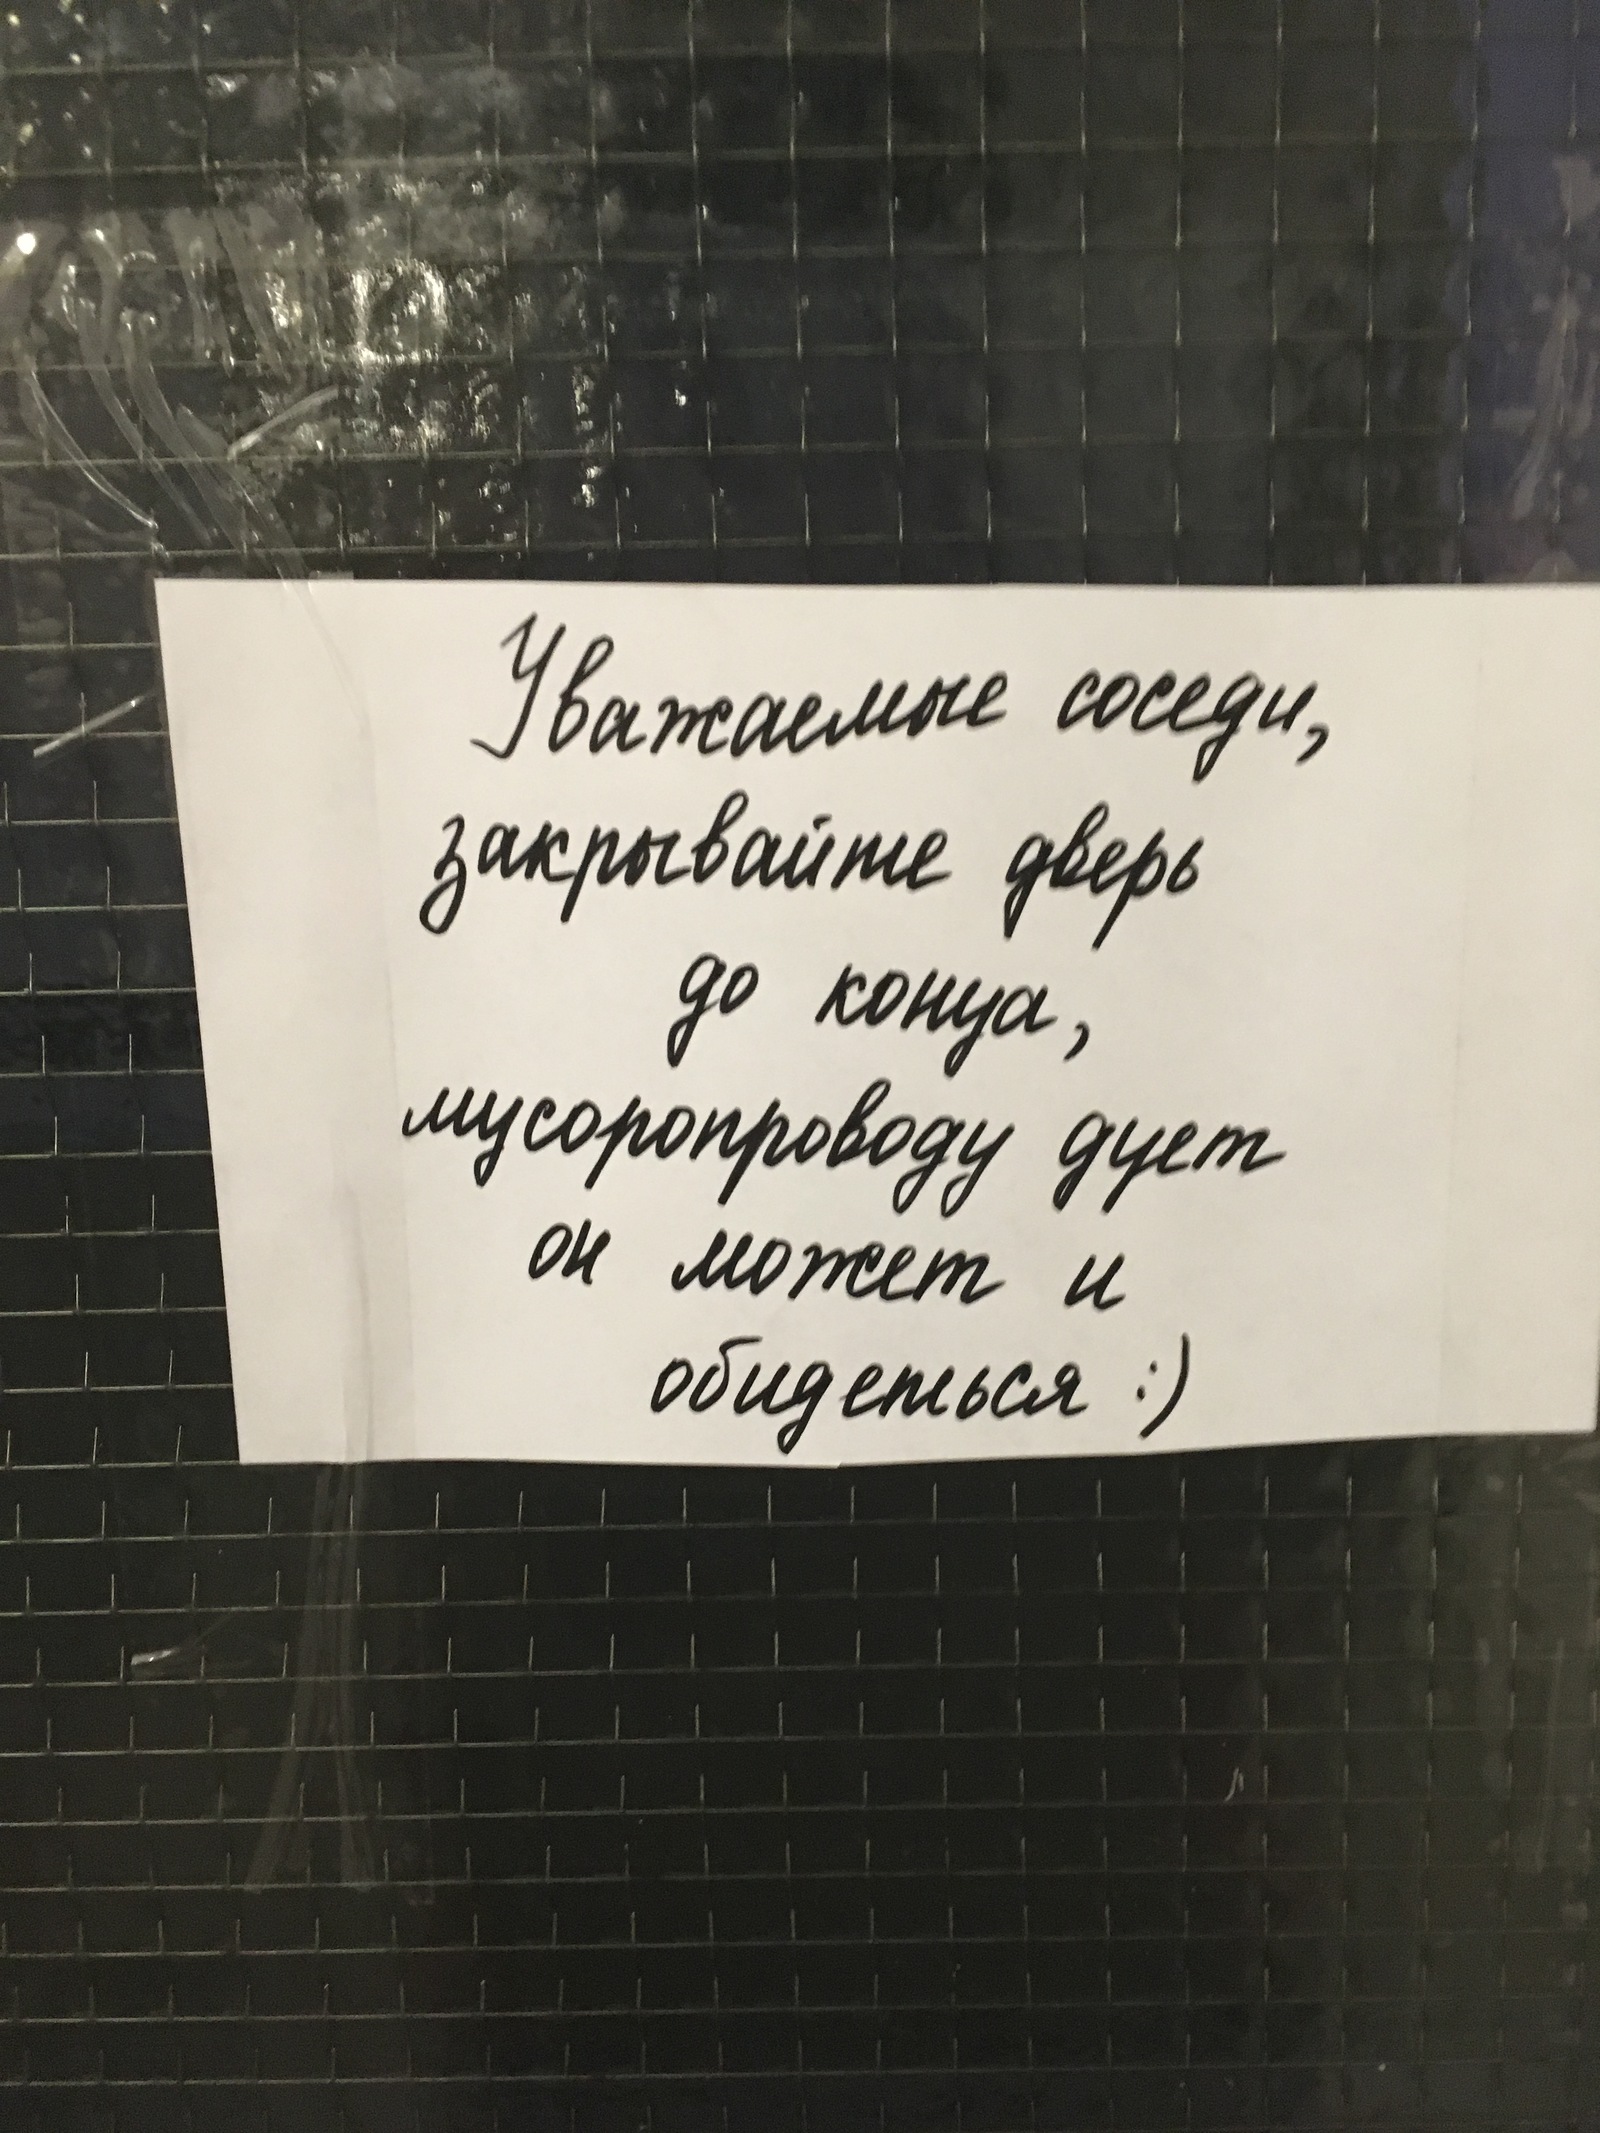 Уважаемые соседи,
закрывайте дверь
до конца,
мусоропроводу дует
он может и
обидеться :)